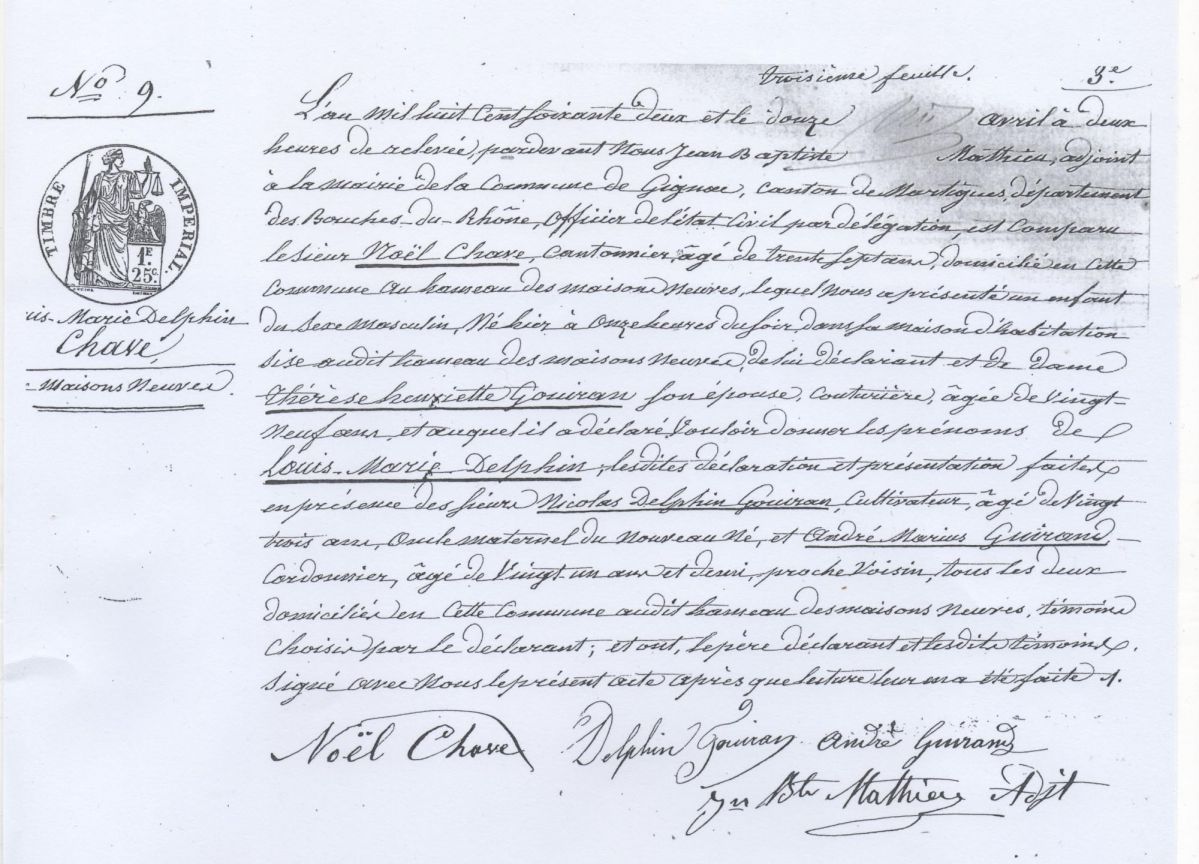 troisième feuille. 3.e
No 9.
L'an mil huit Cent soixante deux et le douze avril à deux
heures de relevée, pardevant Nous Jean Baptiste Mathieu, adjoint
à la mairie de la Commune de Gignac, canton de Martigues, département
des Bouches-du-Rhône, officier de l'état Civil par délégation, est Comparu
le sieur Noël Chave, cantonnier, âgé de trente sept ans, domicilié en cette
Commune au hameau des maisons Neuves, lequel Nous a présenté un enfant
du Sexe masculin, Né hier à onze heures du soir, dans sa maison d'habitation
sise audit hameau des maisons Neuves, de lui déclarant et de dame
Thérèse henriette Gouiran son épouse, Couturière, âgée de Vingt-
Neuf ans, et auquel il a déclaré Vouloir donner les prénoms de
Louis-Marie-Delphin, lesdites déclaration et présentation faites
en présence des sieurs Nicolas Delphin Gouiran, Cultivateur, âgé de Vingt
trois ans, Oncle maternel du Nouveau Né, et André Marius Guirand
Cordonnier, âgé de Vingt un ans et demi, proche Voisin, tous les deux
domiciliés en Cette Commune audit hameau des maisons Neuves, témoins
Choisis par le déclarant; et ont, le père déclarant et lesdits témoins.
Signé avec Nous le présent acte après que lecture leur en a été faite.
TIMBRE IMPERIAL.
1F.
25c.
uis-Marie Delphin
Chave,
-maisons Neuves.
Noël Chave Delphin Gouiran André Guirand
Jn Bte Mathieu Adjt